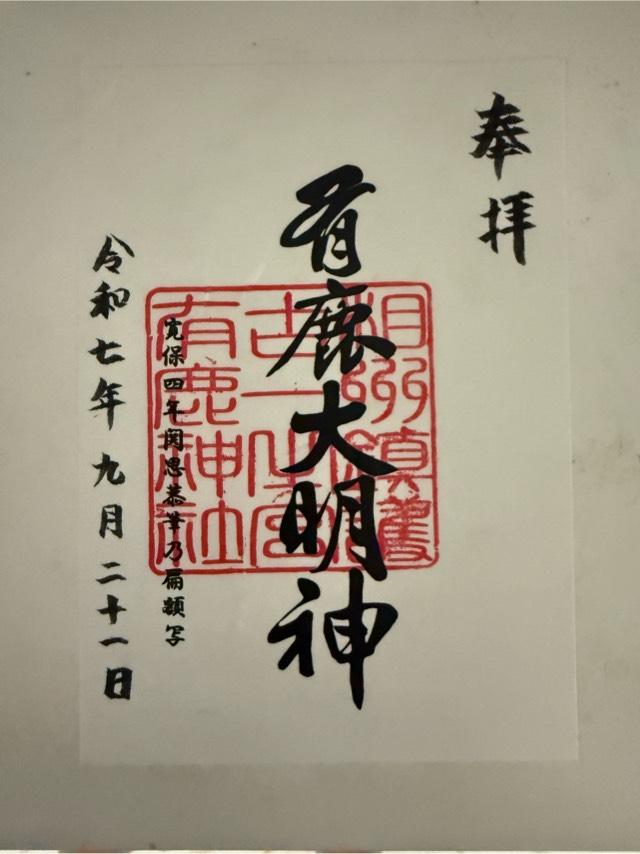 奉拝
有鹿大明神
相州鎮護
古一之宮
有鹿神社
寛保四年関思恭筆乃扁額写
令和七年九月二十一日